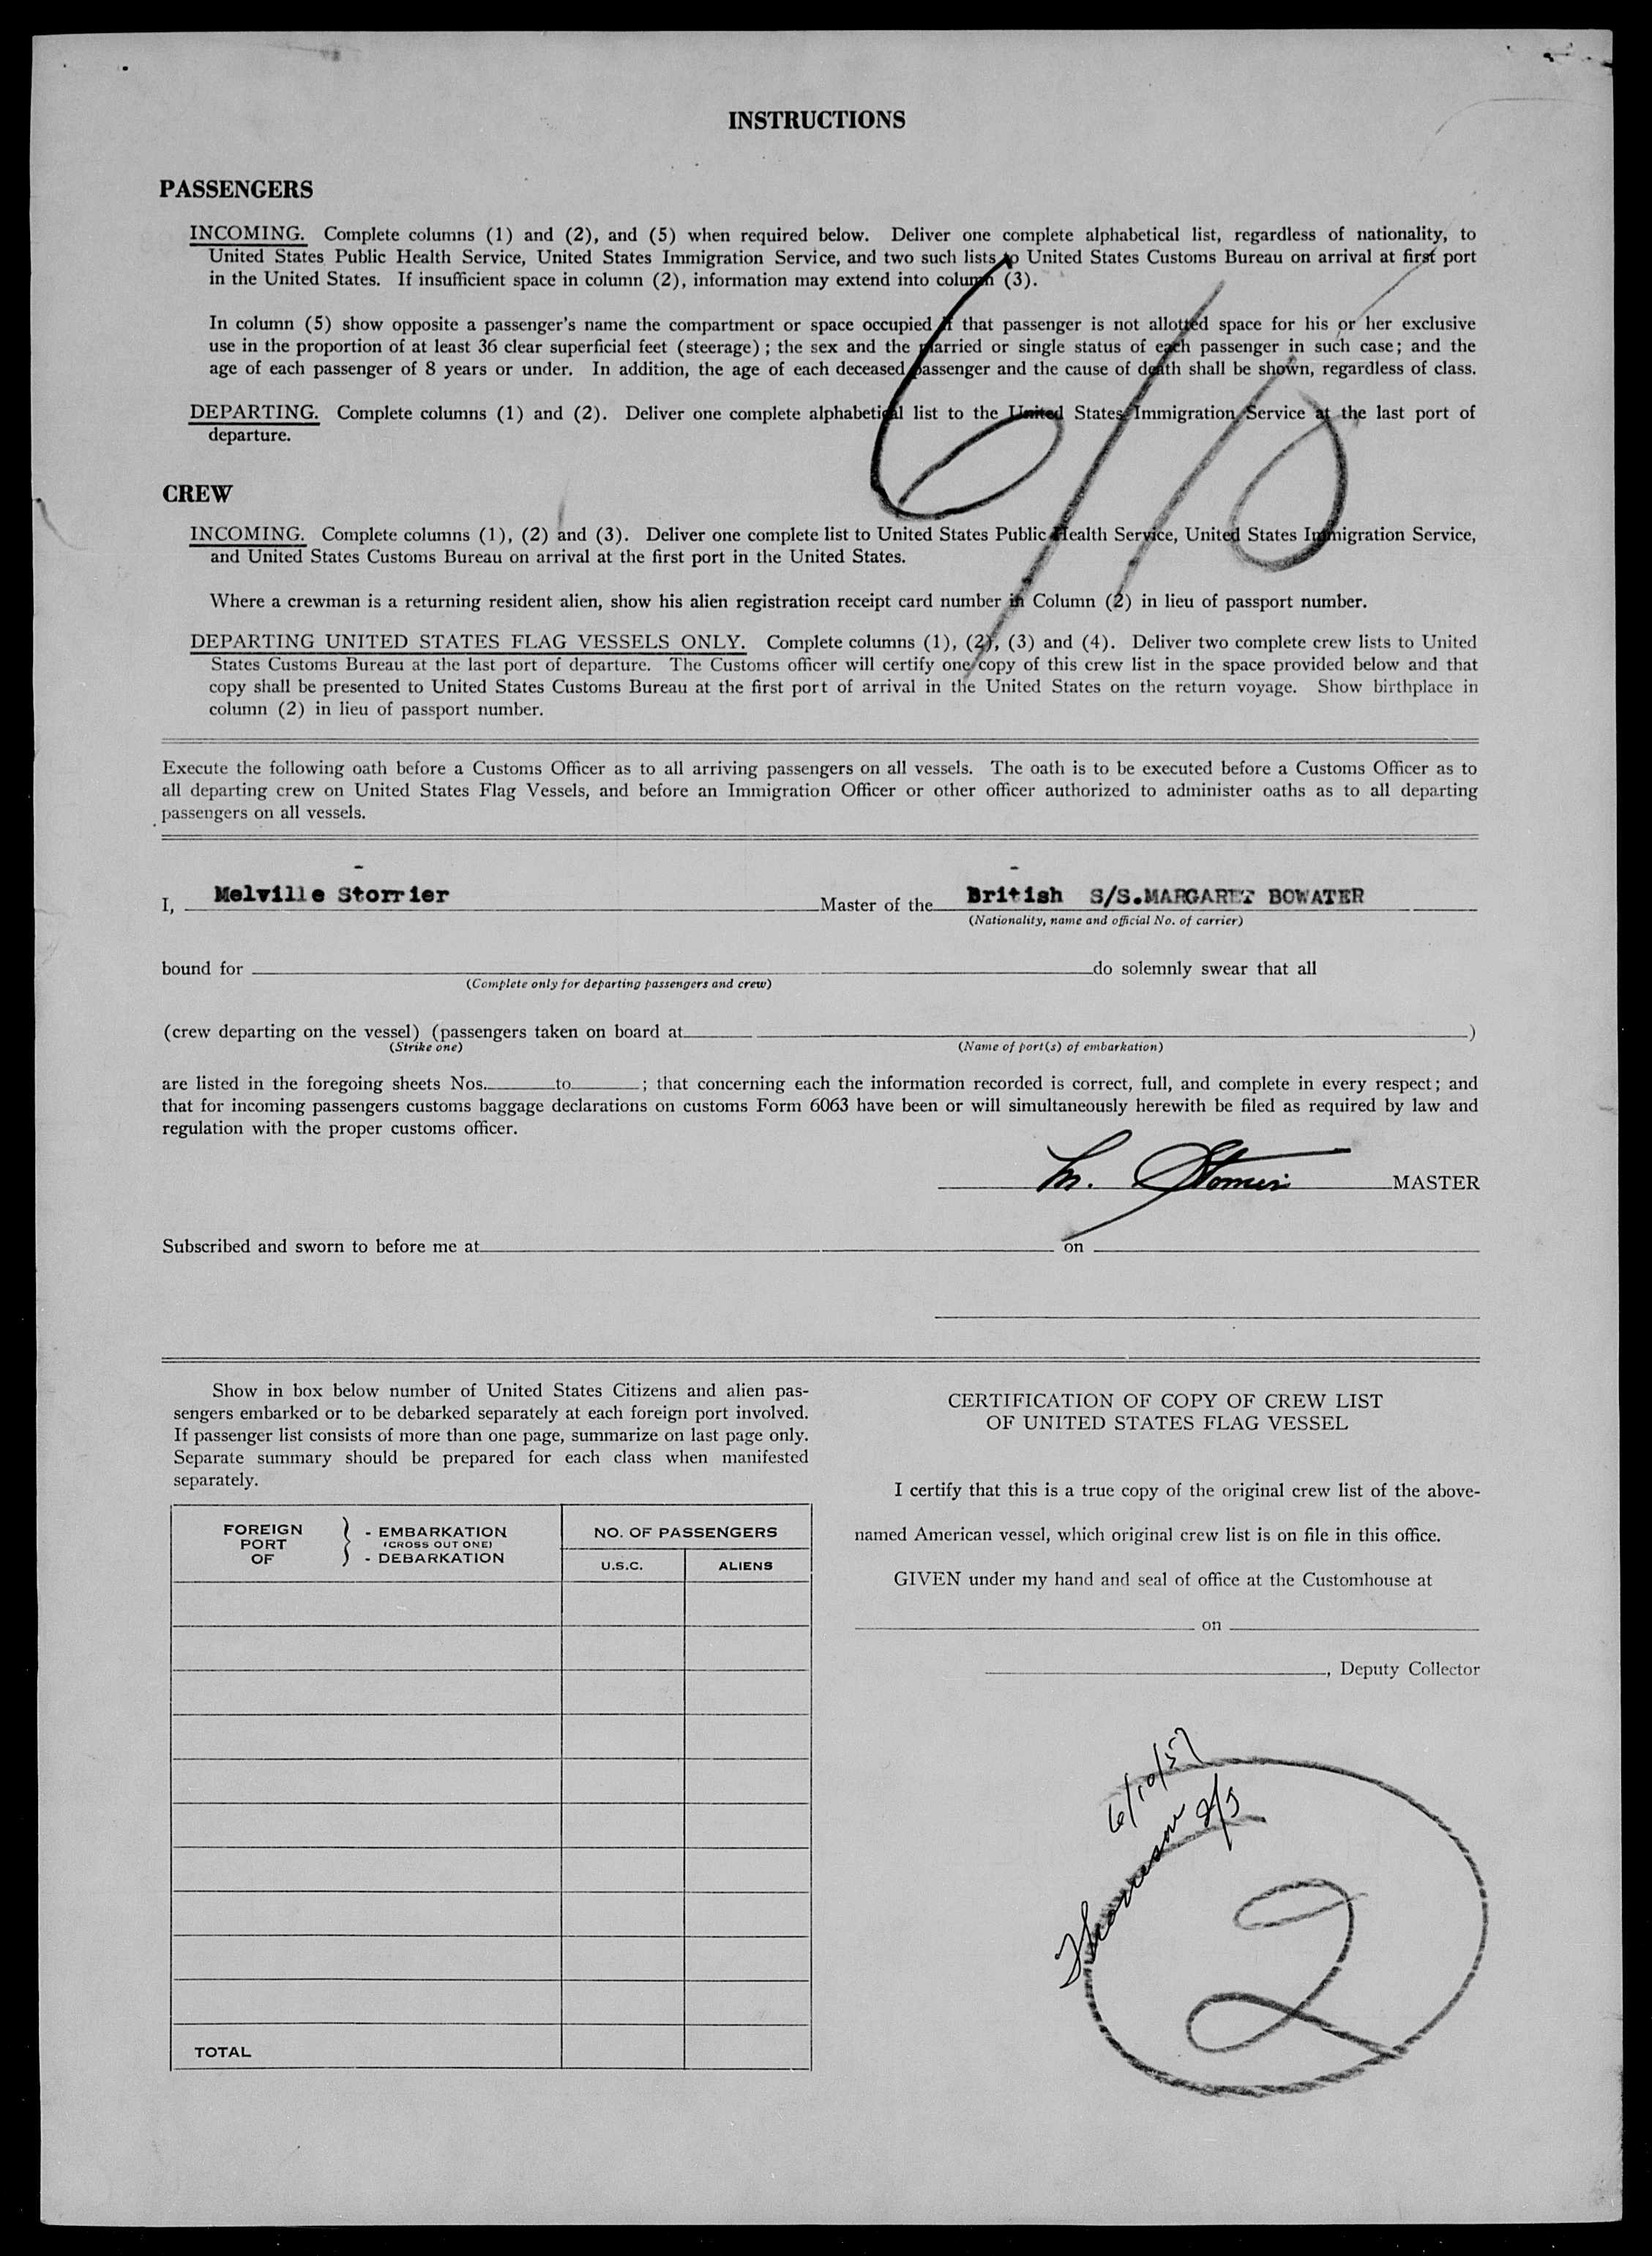 INSTRUCTIONS
PASSENGERS
INCOMING. Complete columns (1) and (2), and (5) when required below. Deliver one complete alphabetical list, regardless of nationality, to
United States Public Health Service, United States Immigration Service, and two such lists to United States Customs Bureau on arrival at first port
in the United States. If insufficient space in column (2), information may extend into column (3).
In column (5) show opposite a passenger's name the compartment or space occupied if that passenger is not allotted space for his or her exclusive
use in the proportion of at least 36 clear superficial feet (steerage); the sex and the married or single status of each passenger in such case; and the
age of each passenger of 8 years or under. In addition, the age of each deceased passenger and the cause of death shall be shown, regardless of class.
DEPARTING. Complete columns (1) and (2). Deliver one complete alphabetical list to the United States Immigration Service at the last port of
departure.
6/10
CREW
INCOMING. Complete columns (1), (2) and (3). Deliver one complete list to United States Public Health Service, United States Immigration Service,
and United States Customs Bureau on arrival at the first port in the United States.
Where a crewman is a returning resident alien, show his alien registration receipt card number in Column (2) in lieu of passport number.
DEPARTING UNITED STATES FLAG VESSELS ONLY. Complete columns (1), (2), (3) and (4). Deliver two complete crew lists to United
States Customs Bureau at the last port of departure. The Customs officer will certify one copy of this crew list in the space provided below and that
copy shall be presented to United States Customs Bureau at the first port of arrival in the United States on the return voyage. Show birthplace in
column (2) in lieu of passport number.
Execute the following oath before a Customs Officer as to all arriving passengers on all vessels. The oath is to be executed before a Customs Officer as to
all departing crew on United States Flag Vessels, and before an Immigration Officer or other officer authorized to administer oaths as to all departing
passengers on all vessels.
I, Melville Storrier Master of the British S/S.MARGARET BOWATER
(Nationality, name and official No. of carrier)
bound for do solemnly swear that all
(Complete only for departing passengers and crew)
(crew departing on the vessel) (passengers taken on board at )
(Strike one) (Name of port(s) of embarkation)
are listed in the foregoing sheets Nos. to ; that concerning each the information recorded is correct, full, and complete in every respect; and
that for incoming passengers customs baggage declarations on customs Form 6063 have been or will simultaneously herewith be filed as required by law and
regulation with the proper customs officer.
M. Storrier MASTER
Subscribed and sworn to before me at on
Show in box below number of United States Citizens and alien pas-
sengers embarked or to be debarked separately at each foreign port involved.
If passenger list consists of more than one page, summarize on last page only.
Separate summary should be prepared for each class when manifested
separately.
FOREIGN PORT OF } - EMBARKATION (CROSS OUT ONE) - DEBARKATION
NO. OF PASSENGERS
U.S.C. ALIENS
TOTAL
CERTIFICATION OF COPY OF CREW LIST
OF UNITED STATES FLAG VESSEL
I certify that this is a true copy of the original crew list of the above-
named American vessel, which original crew list is on file in this office.
GIVEN under my hand and seal of office at the Customhouse at
on
, Deputy Collector
6/10/57
2